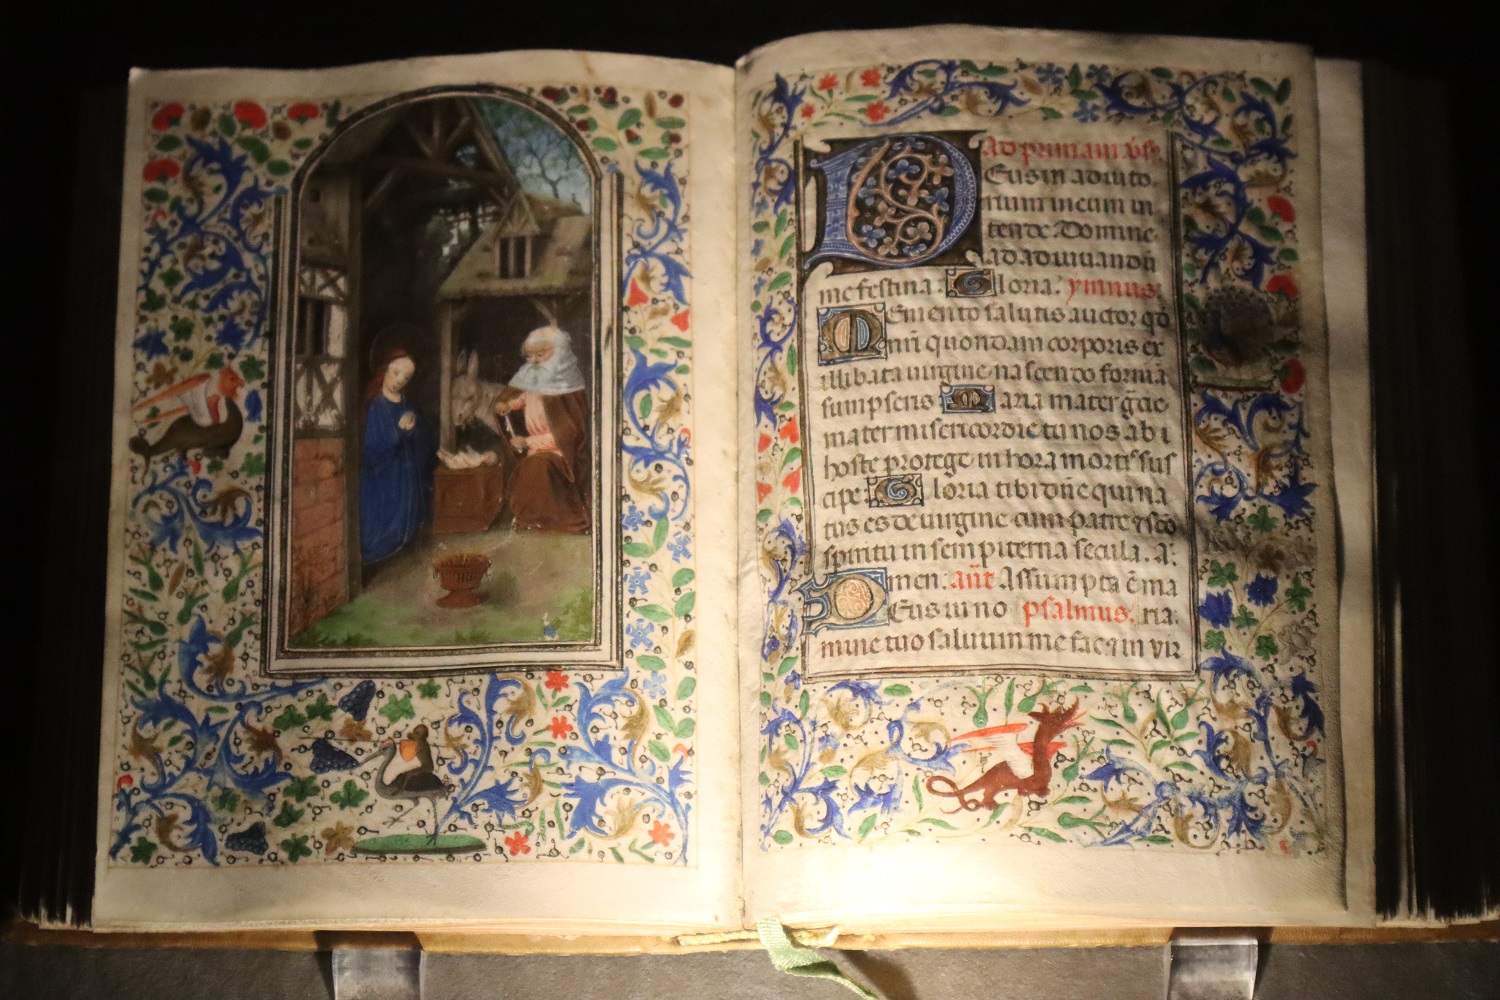 Ad primam v̄s.
Deus in adiuto
rium meum in
tende. Domine
ad adiuuandū
me festina. Gloria. ymnus.
Memento salutis auctor qd̄
nrī quondam corporis ex
illibata uirgine nascendo formā
sumpseris Maria mater gr̄cie
mater misericordie tu nos ab i
hoste protege in hora mortis sus
cipe Gloria tibi dn̄e qui na
tus es de uirgine cum patre ⁊ sc̄o
spiritu in sempiterna secula. A.
men. an̄t Assumpta ē ma
Deus in no psalmus. ria.
mine tuo saluum me fac ⁊ in vir